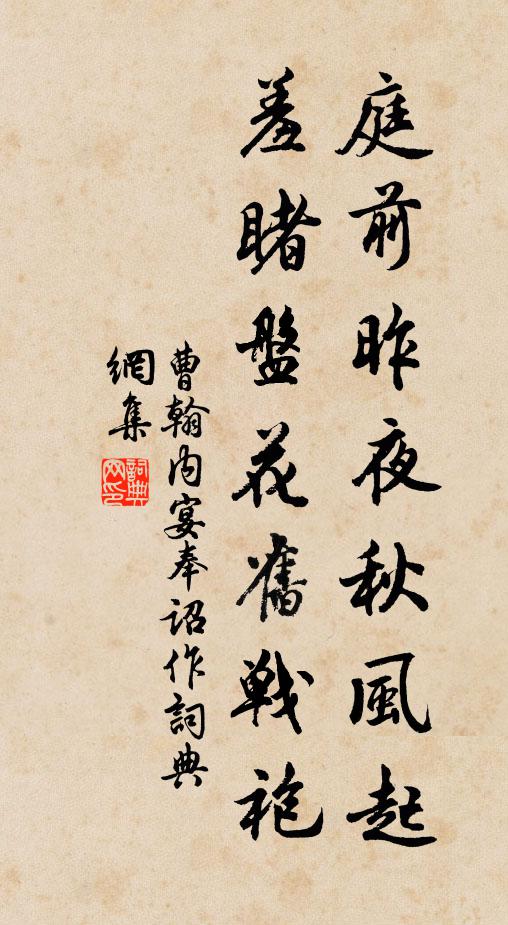 庭前昨夜秋風起
羞睹盤花舊戰袍
曹翰內宴奉詔作詞典
網集
詞典網印